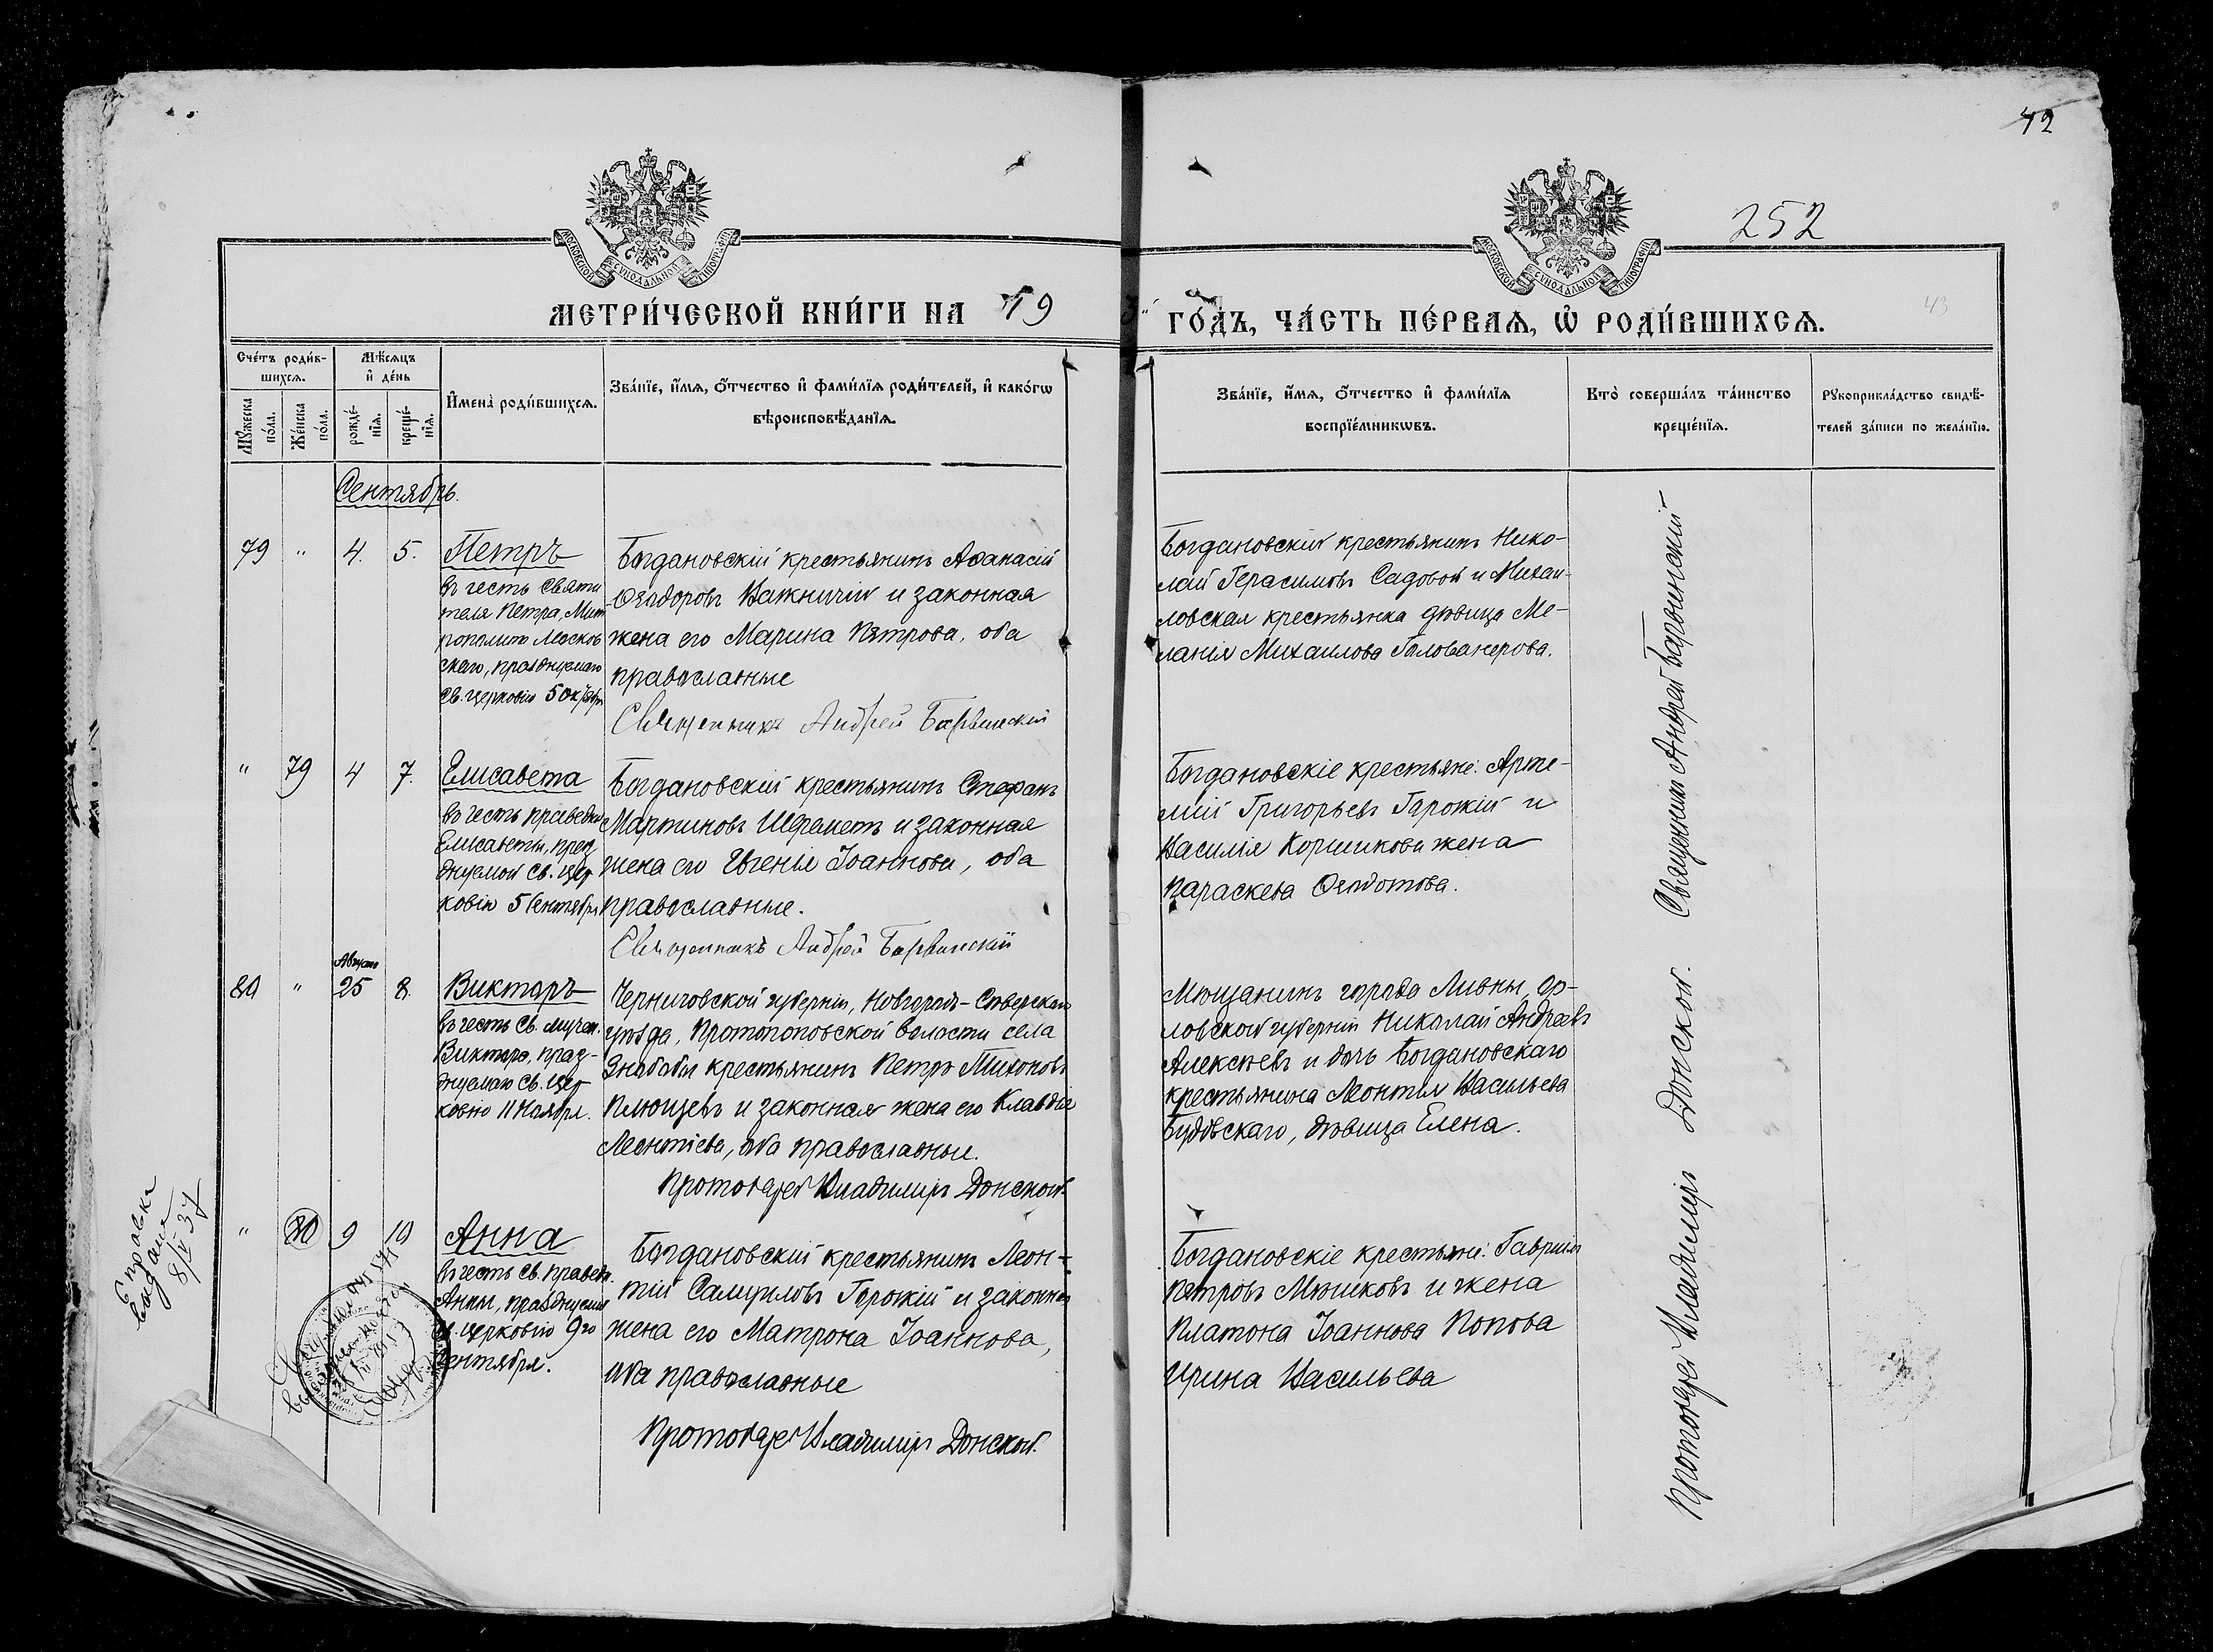 42
252
43
МОСКОВСКОЙ СѴНОДАЛЬНОЙ ТИПОГРАФІИ
МОСКОВСКОЙ СѴНОДАЛЬНОЙ ТИПОГРАФІИ
МЕТРИ́ЧЕСКОЙ КНИ́ГИ НА 19
ГО́ДЪ, ЧА́СТЬ ПЕ́РВАѦ, Ѡ҆ РОДИ́ВШИХСѦ.
Сче́тъ роди́в-
шихсѧ.
Мѣ́сѧцъ
и҆ де́нь
Мꙋ́жеска
по́ла.
Же́нска
по́ла.
рожде́-
нїѧ.
креще́-
нїѧ.
И҆мена̀ роди́вшихсѧ.
Зва́нїе, и҆́мѧ, ѻ҆́тчество и҆ фами́лїѧ роди́телей, и҆ како́гѡ
вѣроисповѣ́данїѧ.
Зва́нїе, и҆́мѧ, ѻ҆́тчество и҆ фами́лїѧ
воспрїе́мникѡвъ.
Кто̀ соверша́лъ та́инство
креще́нїѧ.
Рꙋкоприкла́дство свидѣ́-
телей за́писи по жела́нїю.
Сентябрь.
79 " 4. 5. Петръ
въ честь Святи
теля Петра, Мит
рополита Москов
скаго, празднуемаго
Св. церковію 5 октября
Богдановскій крестьянинъ Аѳанасій
Ѳеодоровъ Важничій и законная
жена его Марина Петрова, оба
православные
Священникъ Андрей Барвинскій
Богдановскій крестьянинъ Нико-
лай Герасимовъ Садовой и Михай-
ловская крестьянка дѣвица Ме-
ланія Михаилова Голованерова.
" 79 4 7. Елисавета
въ честь праведн
Елисаветы, праз
днуемой Св. цер
ковію 5 Сентября
Богдановскій крестьянинъ Стефанъ
Мартиновъ Шереметъ и законная
жена его Евгенія Іоаннова, оба
православные.
Священникъ Андрей Барвинскій
Богдановскіе крестьяне: Арте-
мій Григорьевъ Горожій и
Василія Коршикова жена
Параскева Ѳеодотова.
Священникъ Андрей Барвинскій
Августа
80 " 25 8. Викторъ
въ честь Св. мучен.
Виктора, праз-
днуемаго Св. Цер
ковію 11 Ноября.
Черниговской губерніи, Новгородъ-Сѣверскаго
уѣзда, Протопоповской волости села
Знобобы крестьянинъ Петръ Тихоновъ
Плющевъ и законная жена его Клавдія
Леонтіева, оба православные.
Протоіерей Владимиръ Донской.
Мѣщанинъ города Ливны, Ор-
ловской губерніи Николай Андреевъ
Алексѣевъ и дочь Богдановскаго
крестьянина Леонтія Васильева
Будовскаго, дѣвица Елена.
" 80 9 10 Анна
въ честь Св. правед.
Анны, празднуемой
Св. церковію 9го
Сентября.
Богдановскій крестьянинъ Леон-
тій Самуиловъ Горожій и законная
жена его Матрона Іоаннова,
оба православные
Протоіерей Владимиръ Донской.
Богдановскіе крестьяне: Гавріилъ
Петровъ Мѣшковъ и жена
Платона Іоаннова Попова
Ирина Васильева
Протоіерей Владимиръ Донской.
Справка
выдана
8/IV 37